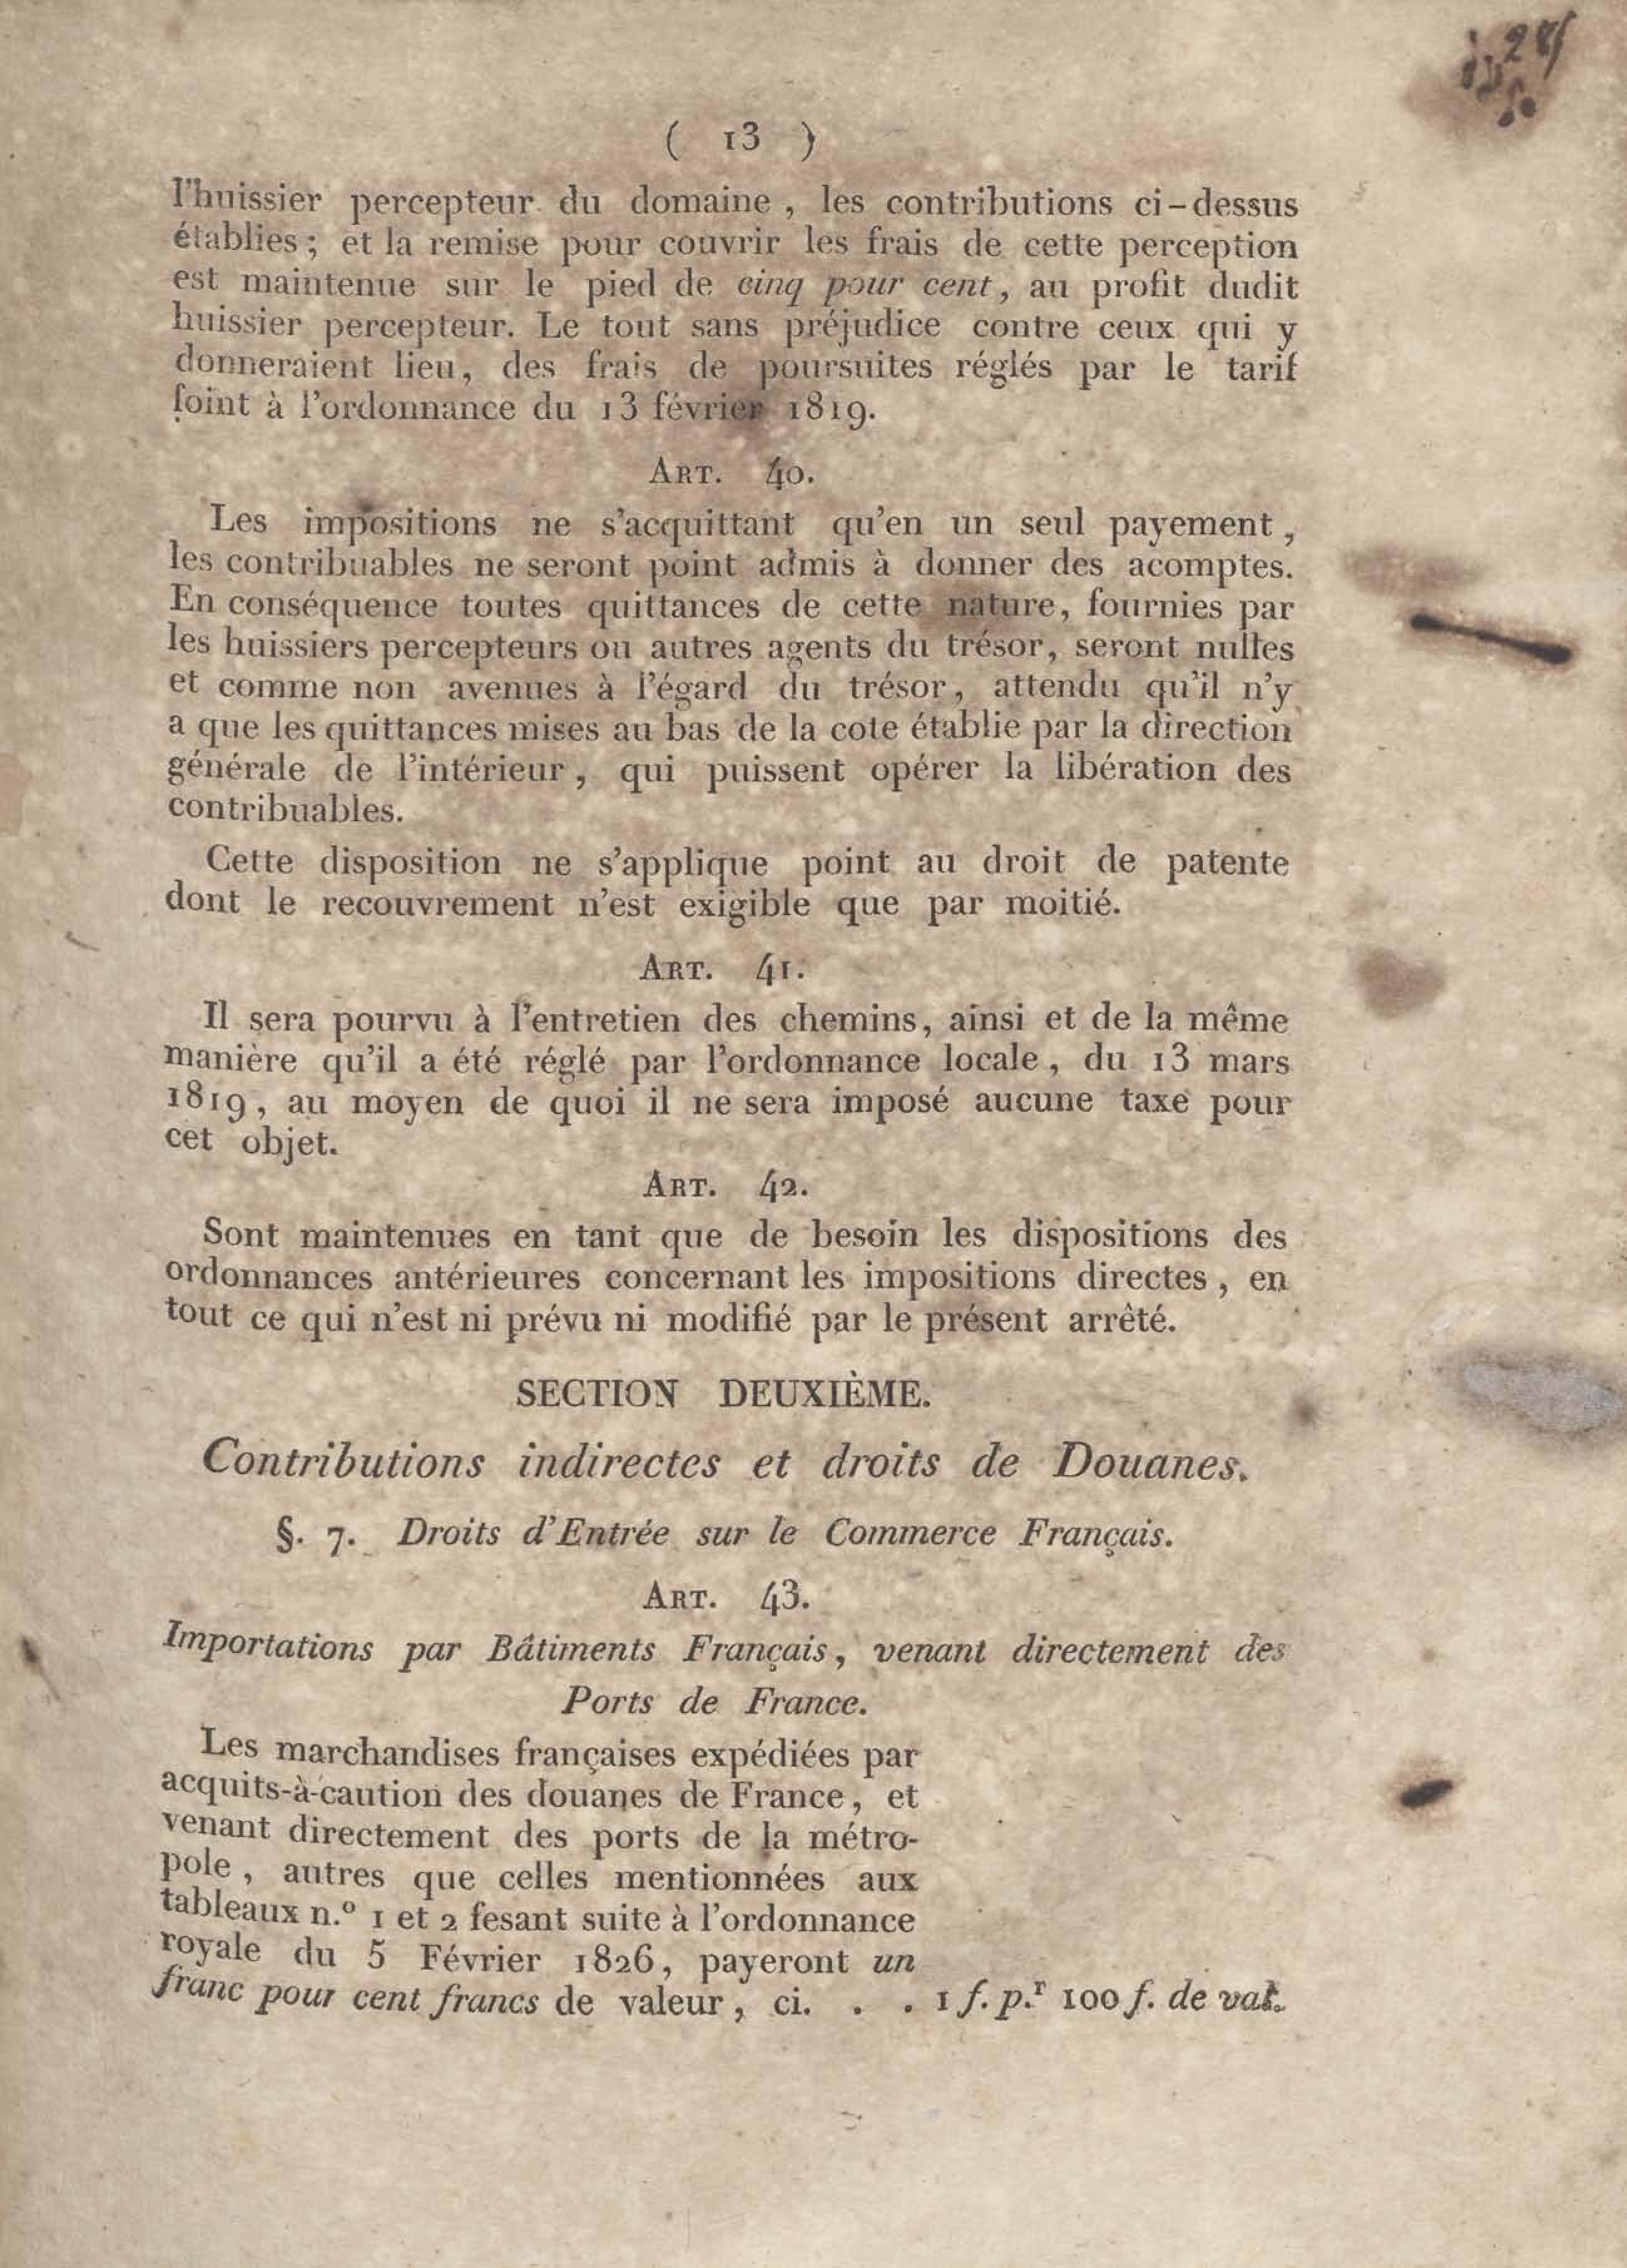 ( 13 )
l'huissier percepteur du domaine , les contributions ci-dessus
établies ; et la remise pour couvrir les frais de cette perception
est maintenue sur le pied de cinq pour cent, au profit dudit
huissier percepteur. Le tout sans préjudice contre ceux qui y
donneraient lieu, des frais de poursuites réglés par le tarif
joint à l'ordonnance du 13 février 1819.
ART. 40.
Les impositions ne s'acquittant qu'en un seul payement ,
les contribuables ne seront point admis à donner des acomptes.
En conséquence toutes quittances de cette nature, fournies par
les huissiers percepteurs ou autres agents du trésor, seront nulles
et comme non avenues à l'égard du trésor, attendu qu'il n'y
a que les quittances mises au bas de la cote établie par la direction
générale de l'intérieur , qui puissent opérer la libération des
contribuables.
Cette disposition ne s'applique point au droit de patente
dont le recouvrement n'est exigible que par moitié.
ART. 41.
Il sera pourvu à l'entretien des chemins, ainsi et de la même
manière qu'il a été réglé par l'ordonnance locale , du 13 mars
1819 , au moyen de quoi il ne sera imposé aucune taxe pour
cet objet.
ART. 42.
Sont maintenues en tant que de besoin les dispositions des
ordonnances antérieures concernant les impositions directes , en
tout ce qui n'est ni prévu ni modifié par le présent arrêté.
SECTION DEUXIÈME.
Contributions indirectes et droits de Douanes.
§. 7. Droits d'Entrée sur le Commerce Français.
ART. 43.
Importations par Bâtiments Français, venant directement des
Ports de France.
Les marchandises françaises expédiées par
acquits-à-caution des douanes de France, et
venant directement des ports de la métro-
pole , autres que celles mentionnées aux
tableaux n.º 1 et 2 fesant suite à l'ordonnance
royale du 5 Février 1826, payeront un
franc pour cent francs de valeur , ci. . . 1 f. p.r 100 f. de val.